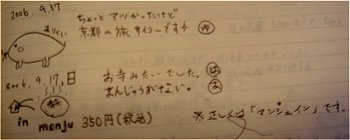 2006. 9. 17
ちょっとアツかったけど
京都の旅サイコーです!
2006. 9. 17. 日
お寺みたいでした。
まんじゅうがすごい。
in menju 350円(税込)
※正しくは「マンシュイン」です。